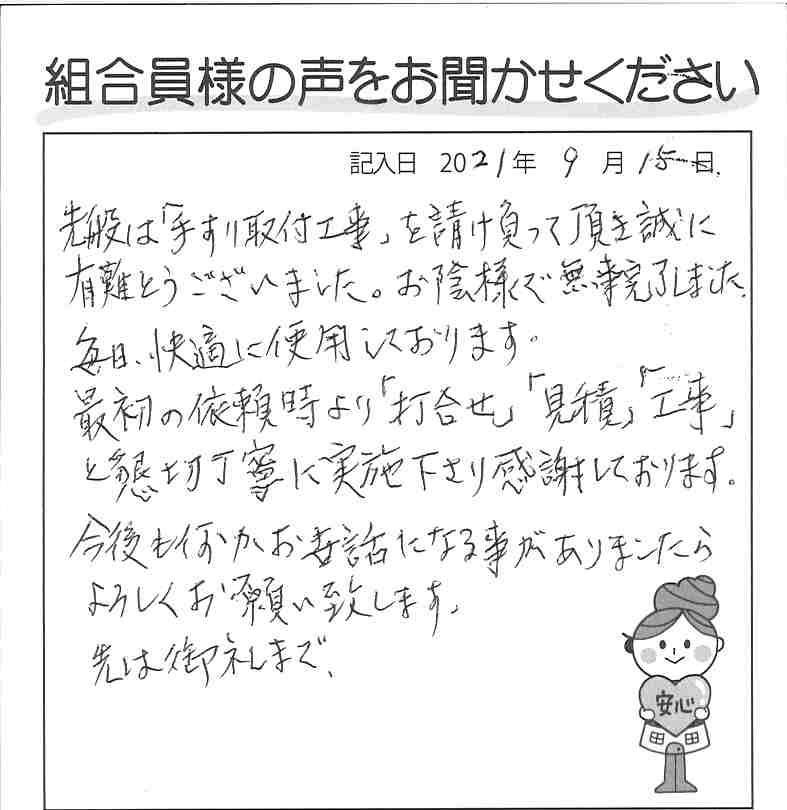 組合員様の声をお聞かせください
記入日 2021年 9月 15日
先般は「手すり取付工事」を請け負って頂き誠に
有難とうございました。お陰様で無事完了しました。
毎日、快適に使用しております。
最初の依頼時より「打合せ」「見積」「工事」
と懇切丁寧に実施下さり感謝しております。
今後も何かお世話になる事がありましたら
よろしくお願い致します。
先は御礼まで、
安心